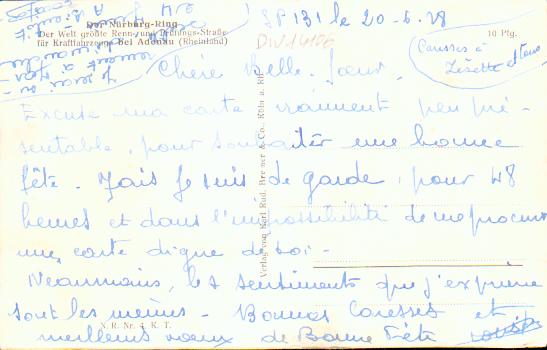 Der Nürburg-Ring
Der Welt größte Renn- und Prüfungs-Straße
für Kraftfahrzeuge bei Adenau (Rheinland)
10 Pfg.
SP 131 le 20-6.28
DIV14106
Caresses à
Lisette et tous
Chère Belle-Soeur,
Excuse ma carte vraiment peu pré-
sentable, pour souhaiter une bonne
fête. Mais je suis de garde pour 48
heures et dans l'impossibilité de me procurer
une carte digne de toi-
Néanmoins, les sentiments que j'exprime
sont les mêmes - Bonnes Caresses et
meilleurs voeux de Bonne Fête
Verlag von Karl Rud. Bremer & Co., Köln a. Rh.
N. R. Nr. 4 K. T.